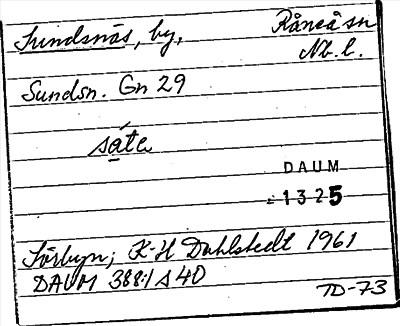 Sundsnäs, by,
Råneå sn
Nb. l.
Sundsn. Gn 29
såte
DAUM
1325
Sörbyn; K-H Dahlstedt 1961
DAUM 388:1 s 40
TD-73